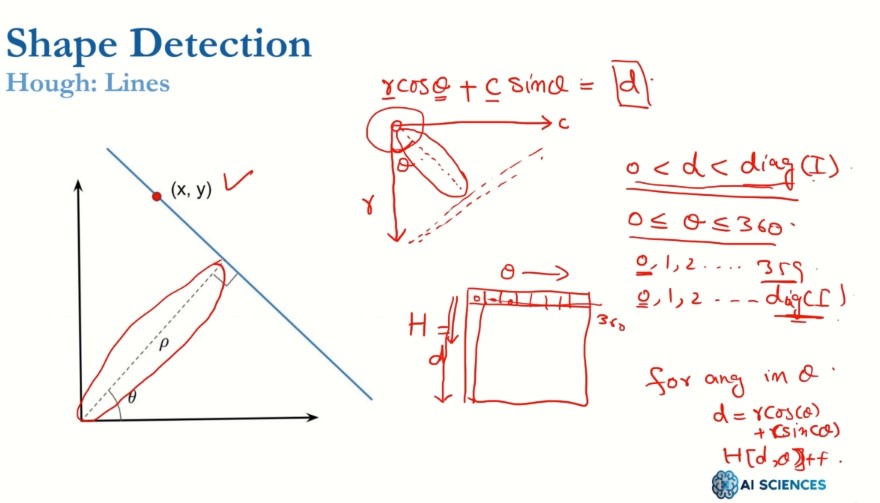 Shape Detection
Hough: Lines
r cos θ + c sin θ = d
c
θ
r
(x, y)
ρ
θ
0 < d < diag(I)
0 ≤ θ ≤ 360
0, 1, 2 .... 359
0, 1, 2 --- diag(I)
θ →
H =
d
0
360
for ang in θ
d = r cos(θ)
+ c sin(θ)
H[d, θ]++
AI SCIENCES